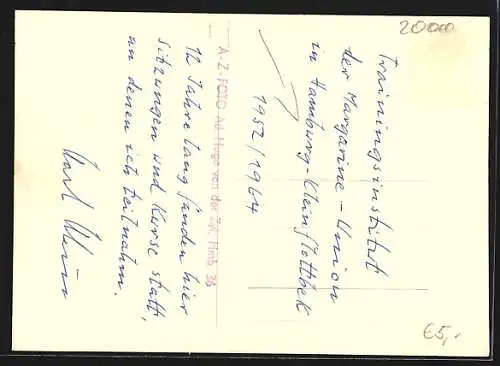 20000
Trainingsinstitut
der Margarine-Union
in Hamburg-Kleinflottbek
1952/1964
A-Z-FOTO Ad. Hugo von der Zyl, Hmb 36
12 Jahre lang fanden hier
Sitzungen und Kurse statt,
an denen ich teilnahm.
Karl
€5,-